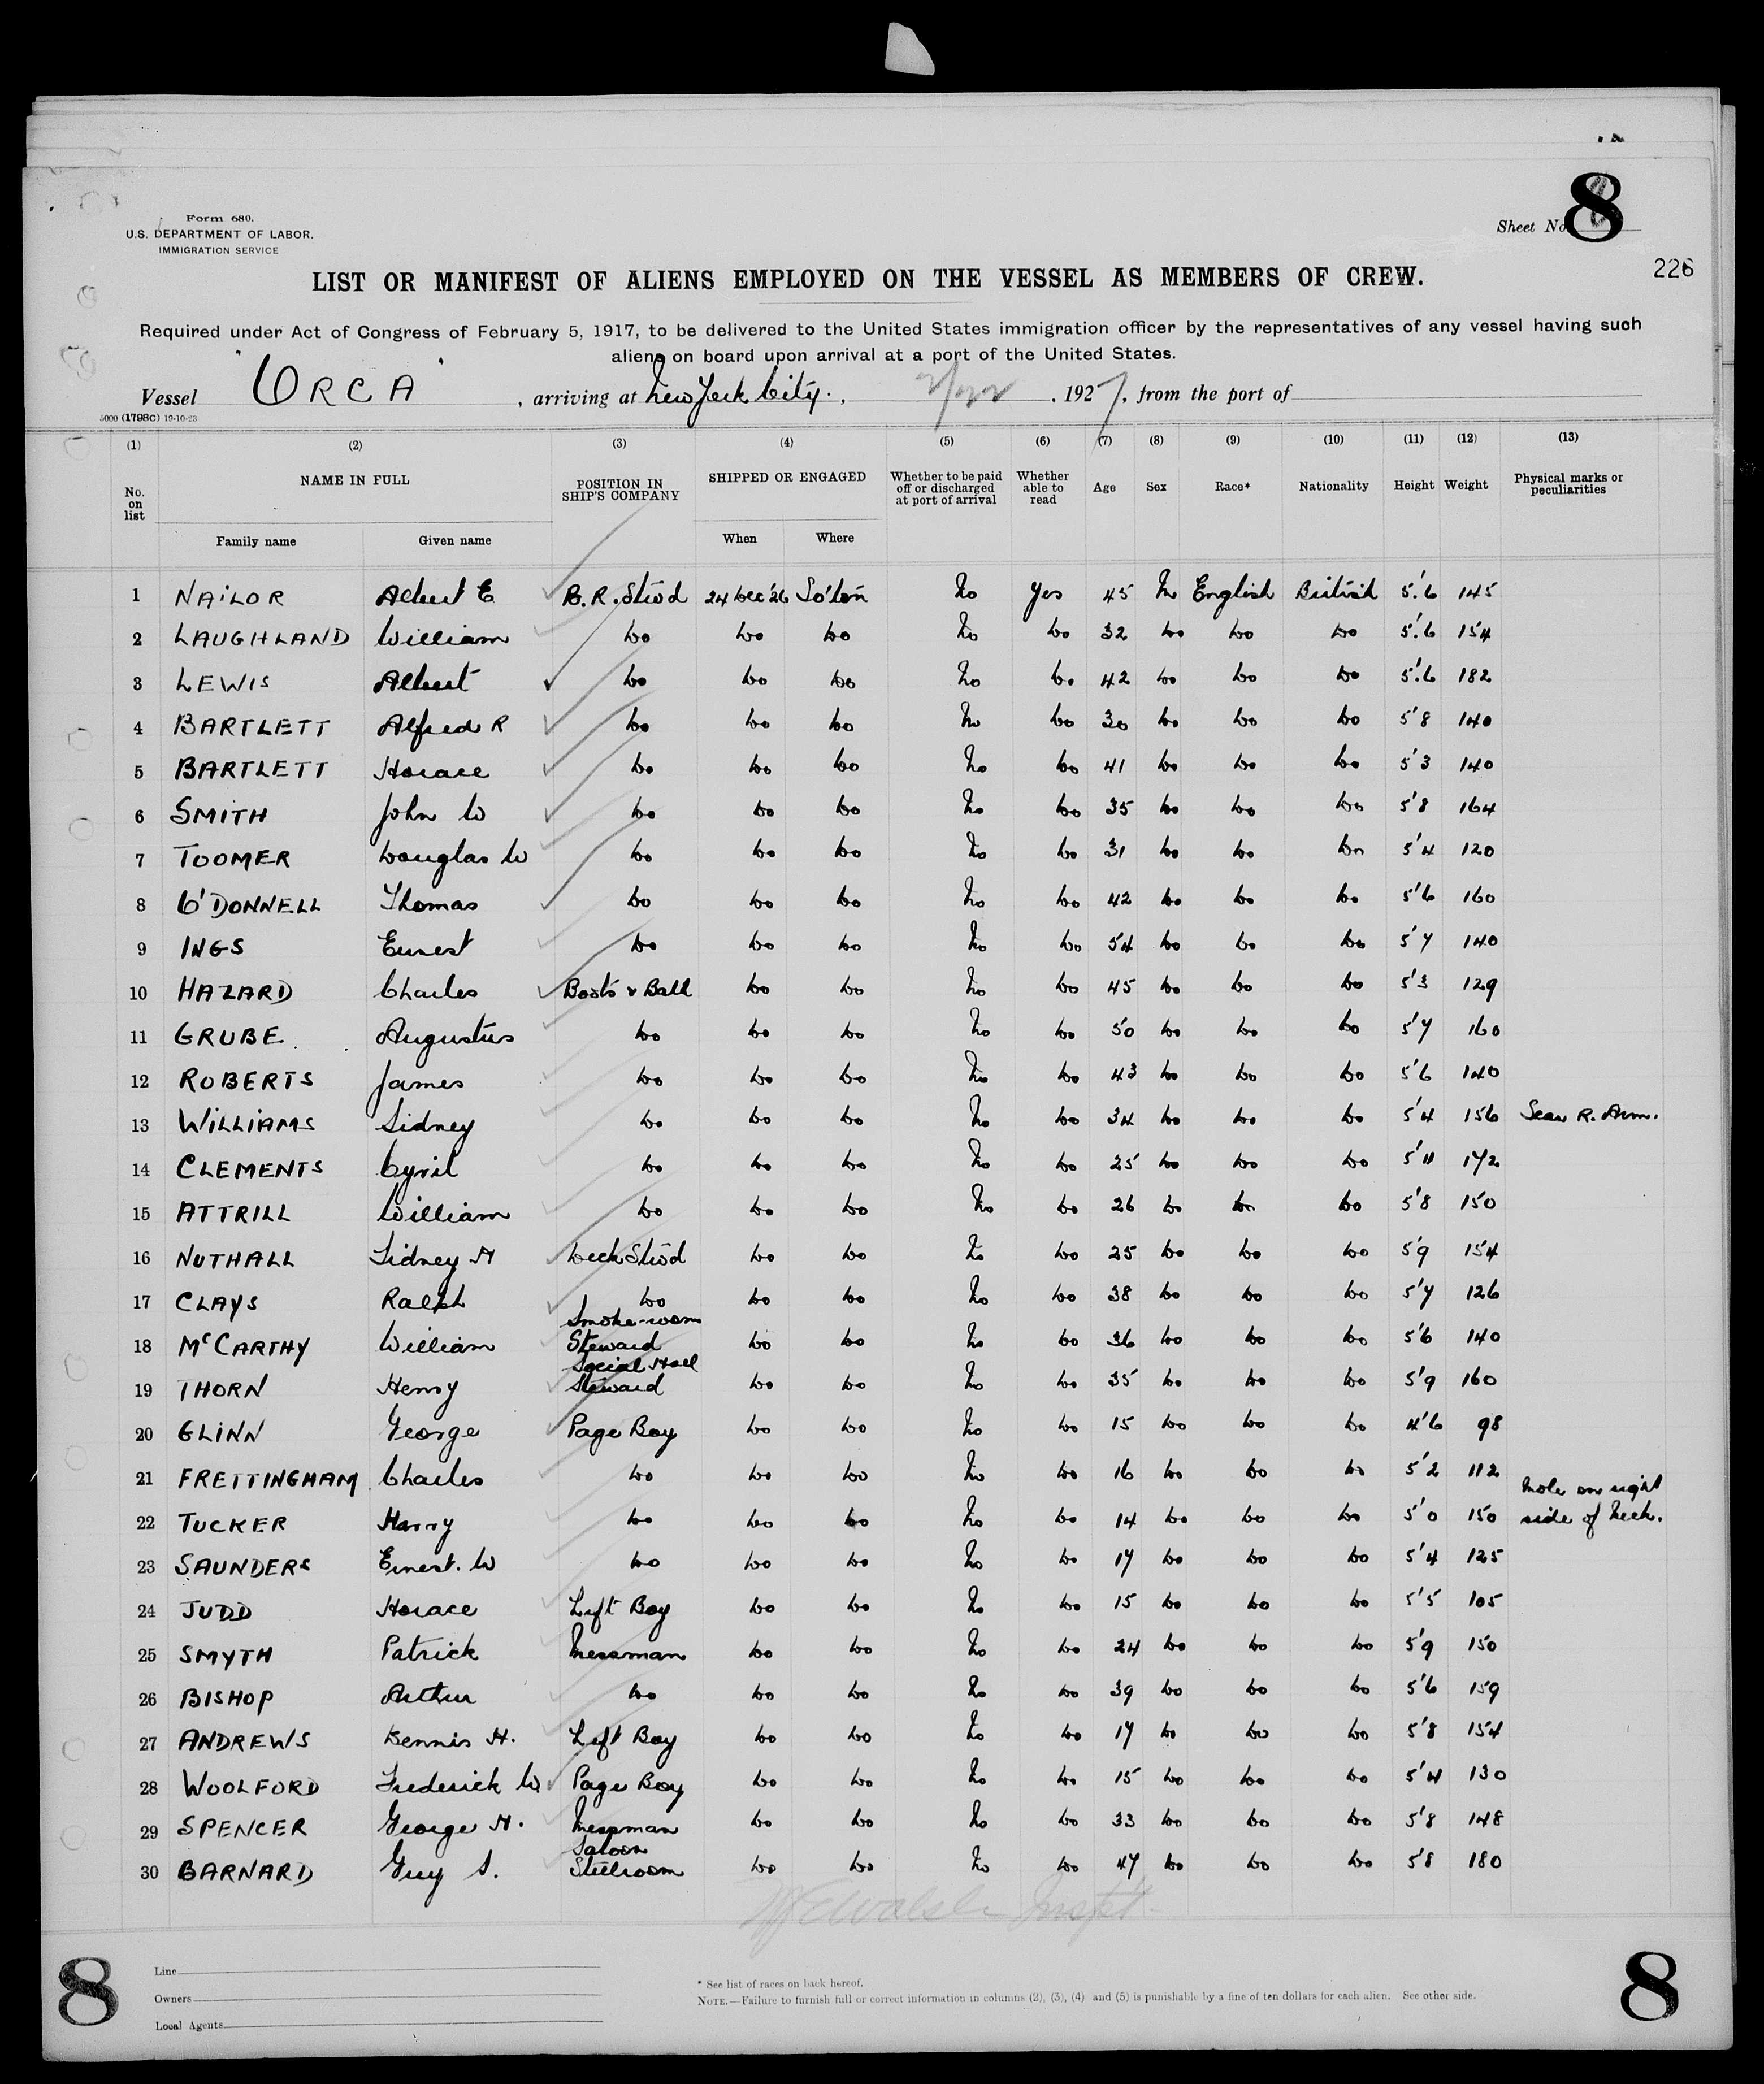 8
Form 680.
U.S. DEPARTMENT OF LABOR.
IMMIGRATION SERVICE
Sheet No. 8
226
LIST OR MANIFEST OF ALIENS EMPLOYED ON THE VESSEL AS MEMBERS OF CREW.
Required under Act of Congress of February 5, 1917, to be delivered to the United States immigration officer by the representatives of any vessel having such
aliens on board upon arrival at a port of the United States.
Vessel "ORCA", arriving at New York City., 1927, from the port of
5000 (1798C) 19-10-23
(1) (2) (3) (4) (5) (6) (7) (8) (9) (10) (11) (12) (13)
No. on list NAME IN FULL POSITION IN SHIP'S COMPANY SHIPPED OR ENGAGED Whether to be paid off or discharged at port of arrival Whether able to read Age Sex Race* Nationality Height Weight Physical marks or peculiarities
Family name Given name When Where
1 NAILOR Albert E B.R. Stwd 24 Dec '26 So'ton No Yes 45 M English British 5'.6 145
2 LAUGHLAND William Do Do Do No Do 32 Do Do Do 5'.6 154
3 LEWIS Albert Do Do Do No Do 42 Do Do Do 5'.6 182
4 BARTLETT Alfred R Do Do Do No Do 30 Do Do Do 5'8 140
5 BARTLETT Horace Do Do Do No Do 41 Do Do Do 5'3 140
6 SMITH John W Do Do Do No Do 35 Do Do Do 5'8 164
7 TOOMER Douglas W Do Do Do No Do 31 Do Do Do 5'4 120
8 O'DONNELL Thomas Do Do Do No Do 42 Do Do Do 5'6 160
9 INGS Ernest Do Do Do No Do 54 Do Do Do 5'7 140
10 HAZARD Charles Boots & Bath Do Do No Do 45 Do Do Do 5'3 129
11 GRUBE Augustus Do Do Do No Do 50 Do Do Do 5'7 160
12 ROBERTS James Do Do Do No Do 43 Do Do Do 5'6 140
13 WILLIAMS Sidney Do Do Do No Do 34 Do Do Do 5'4 156 Scar R. Arm.
14 CLEMENTS Cyril Do Do Do No Do 25 Do Do Do 5'11 172
15 ATTRILL William Do Do Do No Do 26 Do Do Do 5'8 150
16 NUTHALL Sidney H Deck Stwd Do Do No Do 25 Do Do Do 5'9 154
17 CLAYS Ralph Do Do Do No Do 38 Do Do Do 5'7 126
18 McCARTHY William Smoke-room Steward Do Do No Do 36 Do Do Do 5'6 140
19 THORN Henry Social Hall Steward Do Do No Do 35 Do Do Do 5'9 160
20 GLINN George Page Boy Do Do No Do 15 Do Do Do 4'6 98
21 FRETTINGHAM Charles Do Do Do No Do 16 Do Do Do 5'2 112
22 TUCKER Harry Do Do Do No Do 14 Do Do Do 5'0 150 Mole on right side of Neck.
23 SAUNDERS Ernest. W Do Do Do No Do 17 Do Do Do 5'4 125
24 JUDD Horace Lift Boy Do Do No Do 15 Do Do Do 5'5 105
25 SMYTH Patrick Messman Do Do No Do 24 Do Do Do 5'9 150
26 BISHOP Arthur Do Do Do No Do 39 Do Do Do 5'6 159
27 ANDREWS Dennis H. Lift Boy Do Do No Do 17 Do Do Do 5'8 154
28 WOOLFORD Frederick W Page Boy Do Do No Do 15 Do Do Do 5'4 130
29 SPENCER George H. Messman Do Do No Do 33 Do Do Do 5'8 148
30 BARNARD Guy S. Saloon Stillroom Do Do No Do 47 Do Do Do 5'8 180
Walsh Inspt.
8
Line
Owners
Local Agents
* See list of races on back hereof.
NOTE.—Failure to furnish full or correct information in columns (2), (3), (4) and (5) is punishable by a fine of ten dollars for each alien. See other side.
8